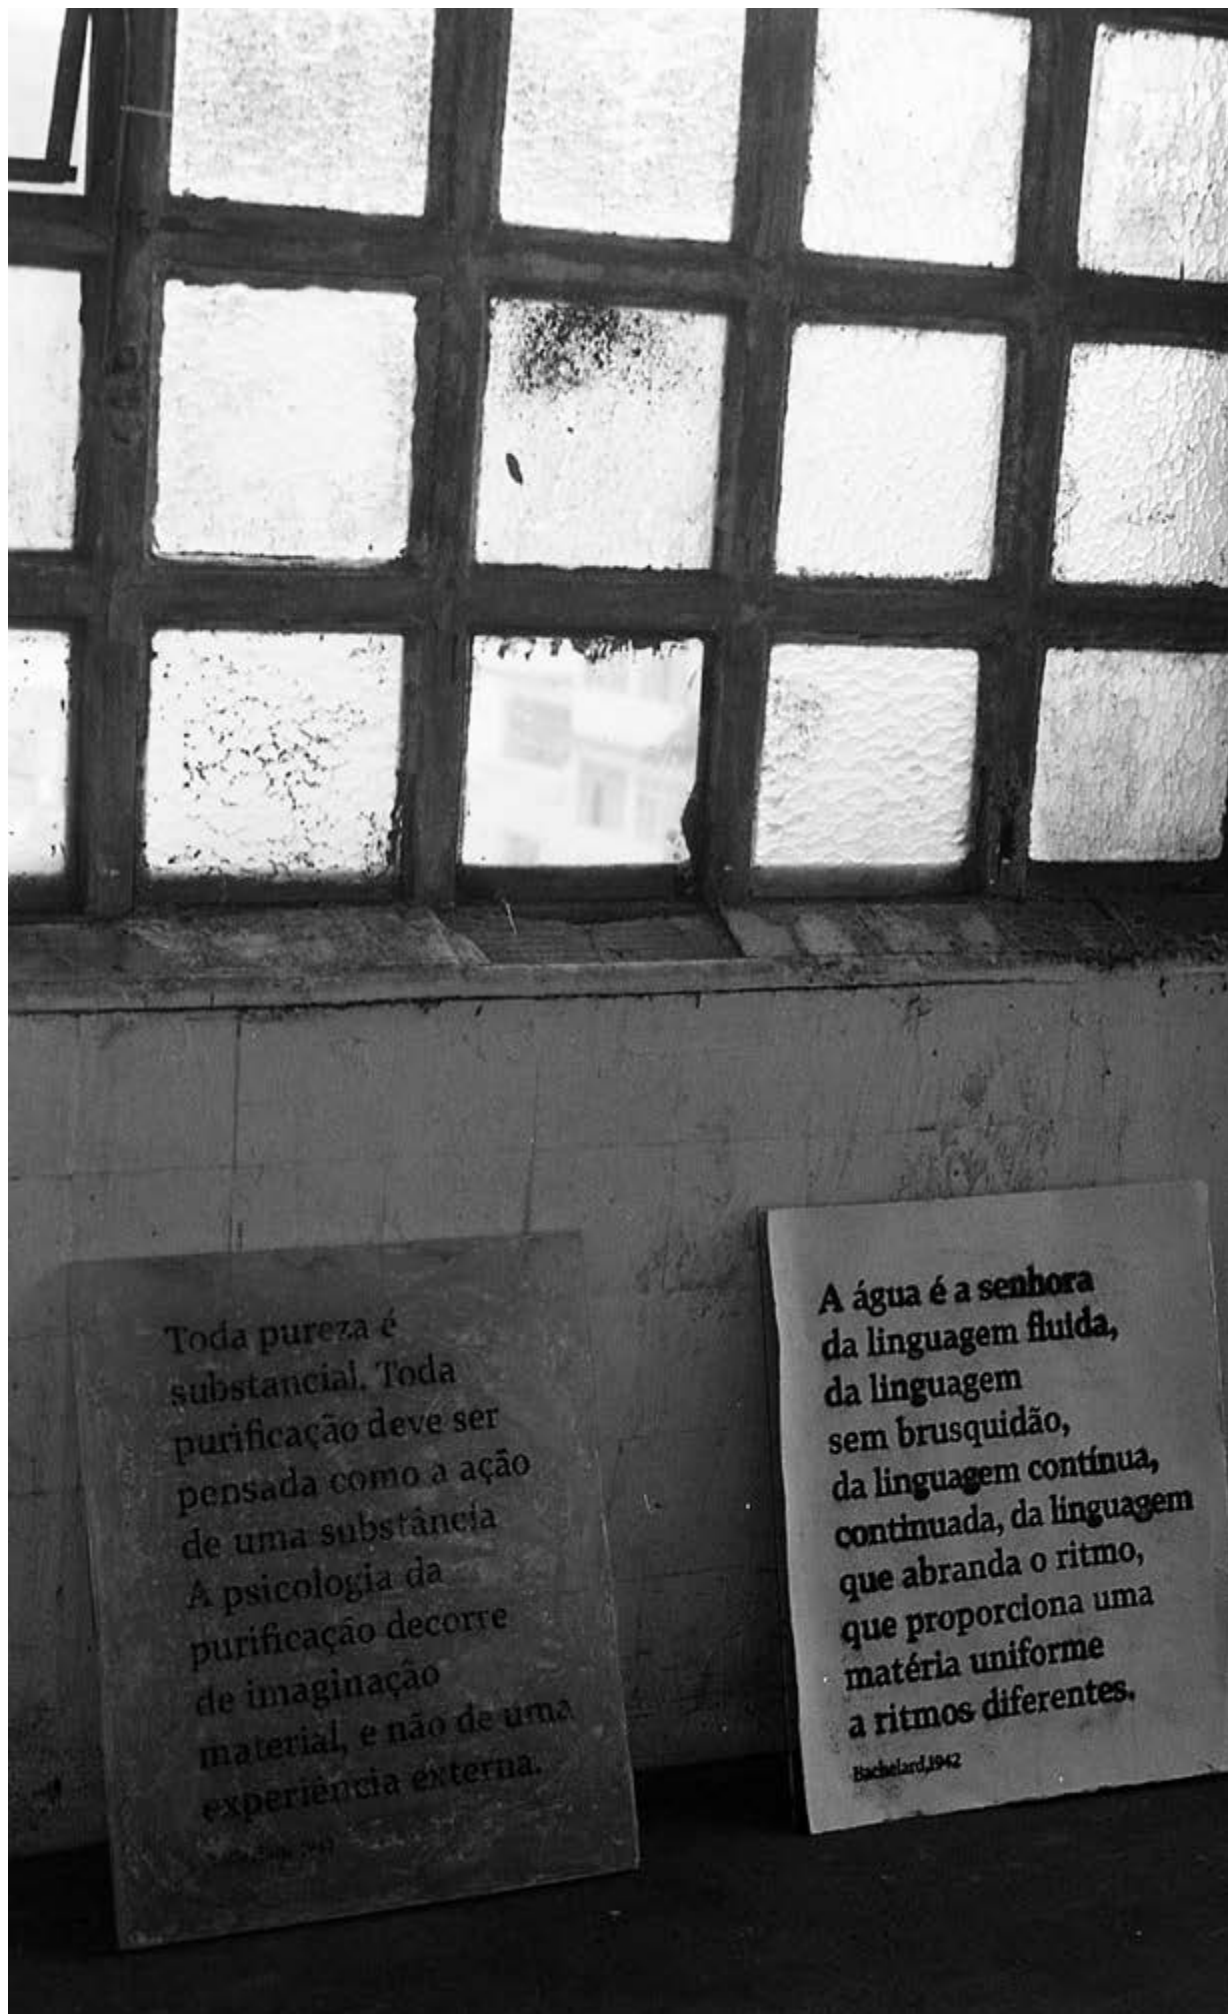 Toda pureza é
substancial. Toda
purificação deve ser
pensada como a ação
de uma substância
A psicologia da
purificação decorre
de imaginação
material, e não de uma
experiência externa.
A água é a senhora
da linguagem fluida,
da linguagem
sem brusquidão,
da linguagem contínua,
continuada, da linguagem
que abranda o ritmo,
que proporciona uma
matéria uniforme
a ritmos diferentes.
Bachelard,1942